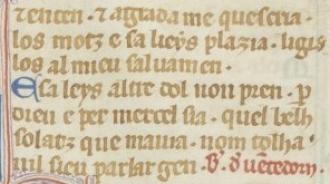 ⁊ encen . ⁊ agrada me quescria .
los motz e sa lieys plazia . ligis
los al mieu saluamen .
E sa leys altre tol non pren . ꝑ
dieu e per mercel sia . quel belh
solatz que mauia . nom tolha
nil sieu parlar gen . B̃. d̓ uẽtedorn .